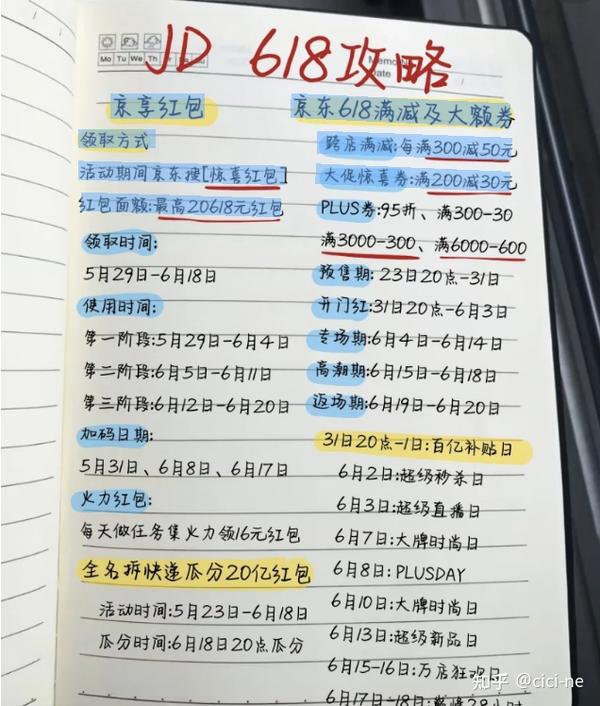 Mo Tu We Th Fr Sa Su
Date
JD 618攻略
京享红包
领取方式
活动期间京东搜[惊喜红包]
红包面额:最高20618元红包
领取时间:
5月29日-6月18日
使用时间:
第一阶段:5月29日-6月4日
第二阶段:6月5日-6月11日
第三阶段:6月12日-6月20日
加码日期:
5月31日、6月8日、6月17日
火力红包:
每天做任务集火力领16元红包
全名拆快递瓜分20亿红包
活动时间:5月23日-6月18日
瓜分时间:6月18日20点瓜分
京东618满减及大额券
跨店满减:每满300减50元
大促惊喜券:满200减30元
PLUS券:95折、满300-30
满3000-300、满6000-600
预售期:23日20点-31日
开门红:31日20点-6月3日
专场期:6月4日-6月14日
高潮期:6月15日-6月18日
返场期:6月19日-6月20日
31日20点-1日:百亿补贴日
6月2日:超级秒杀日
6月3日:超级直播日
6月7日:大牌时尚日
6月8日:PLUSDAY
6月10日:大牌时尚日
6月13日:超级新品日
6月15-16日:万店狂欢日
6月17日-18日:巅峰28小时
知乎 @cici-ne